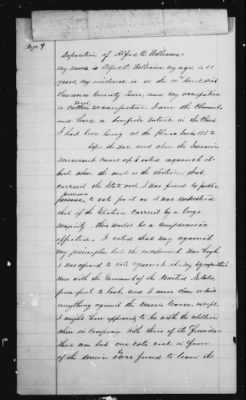 Page 9
Deposition of Alfred C. Williams.
My name is Alfred C. Williams my age is 60
years, my residence is in the 14 Civil Dist
Lawrence County Tenn, and my occupation
a cotton manufacturer. I am the Claimant
and have a complete interest in the Claim
I had been living at the place since 1852
before the war and when the Secession
movement came up I voted against it
but when the ordinance in the election that
carried the State out I was forced by public
pressure to vote for it as it was understood
that if the Election carried by a large
majority there would be a compromise
effected. I voted that way against
my principles but the excitement was so high
I was afraid to vote against it. My sympathies
were with the Government of the United States
from first to last and I never done or said
anything against the Union Cause except
I might have appeared to be with the rebellion
when in Company with those of its friends
There was but one vote cast in favor
of the Union & was forced to leave the